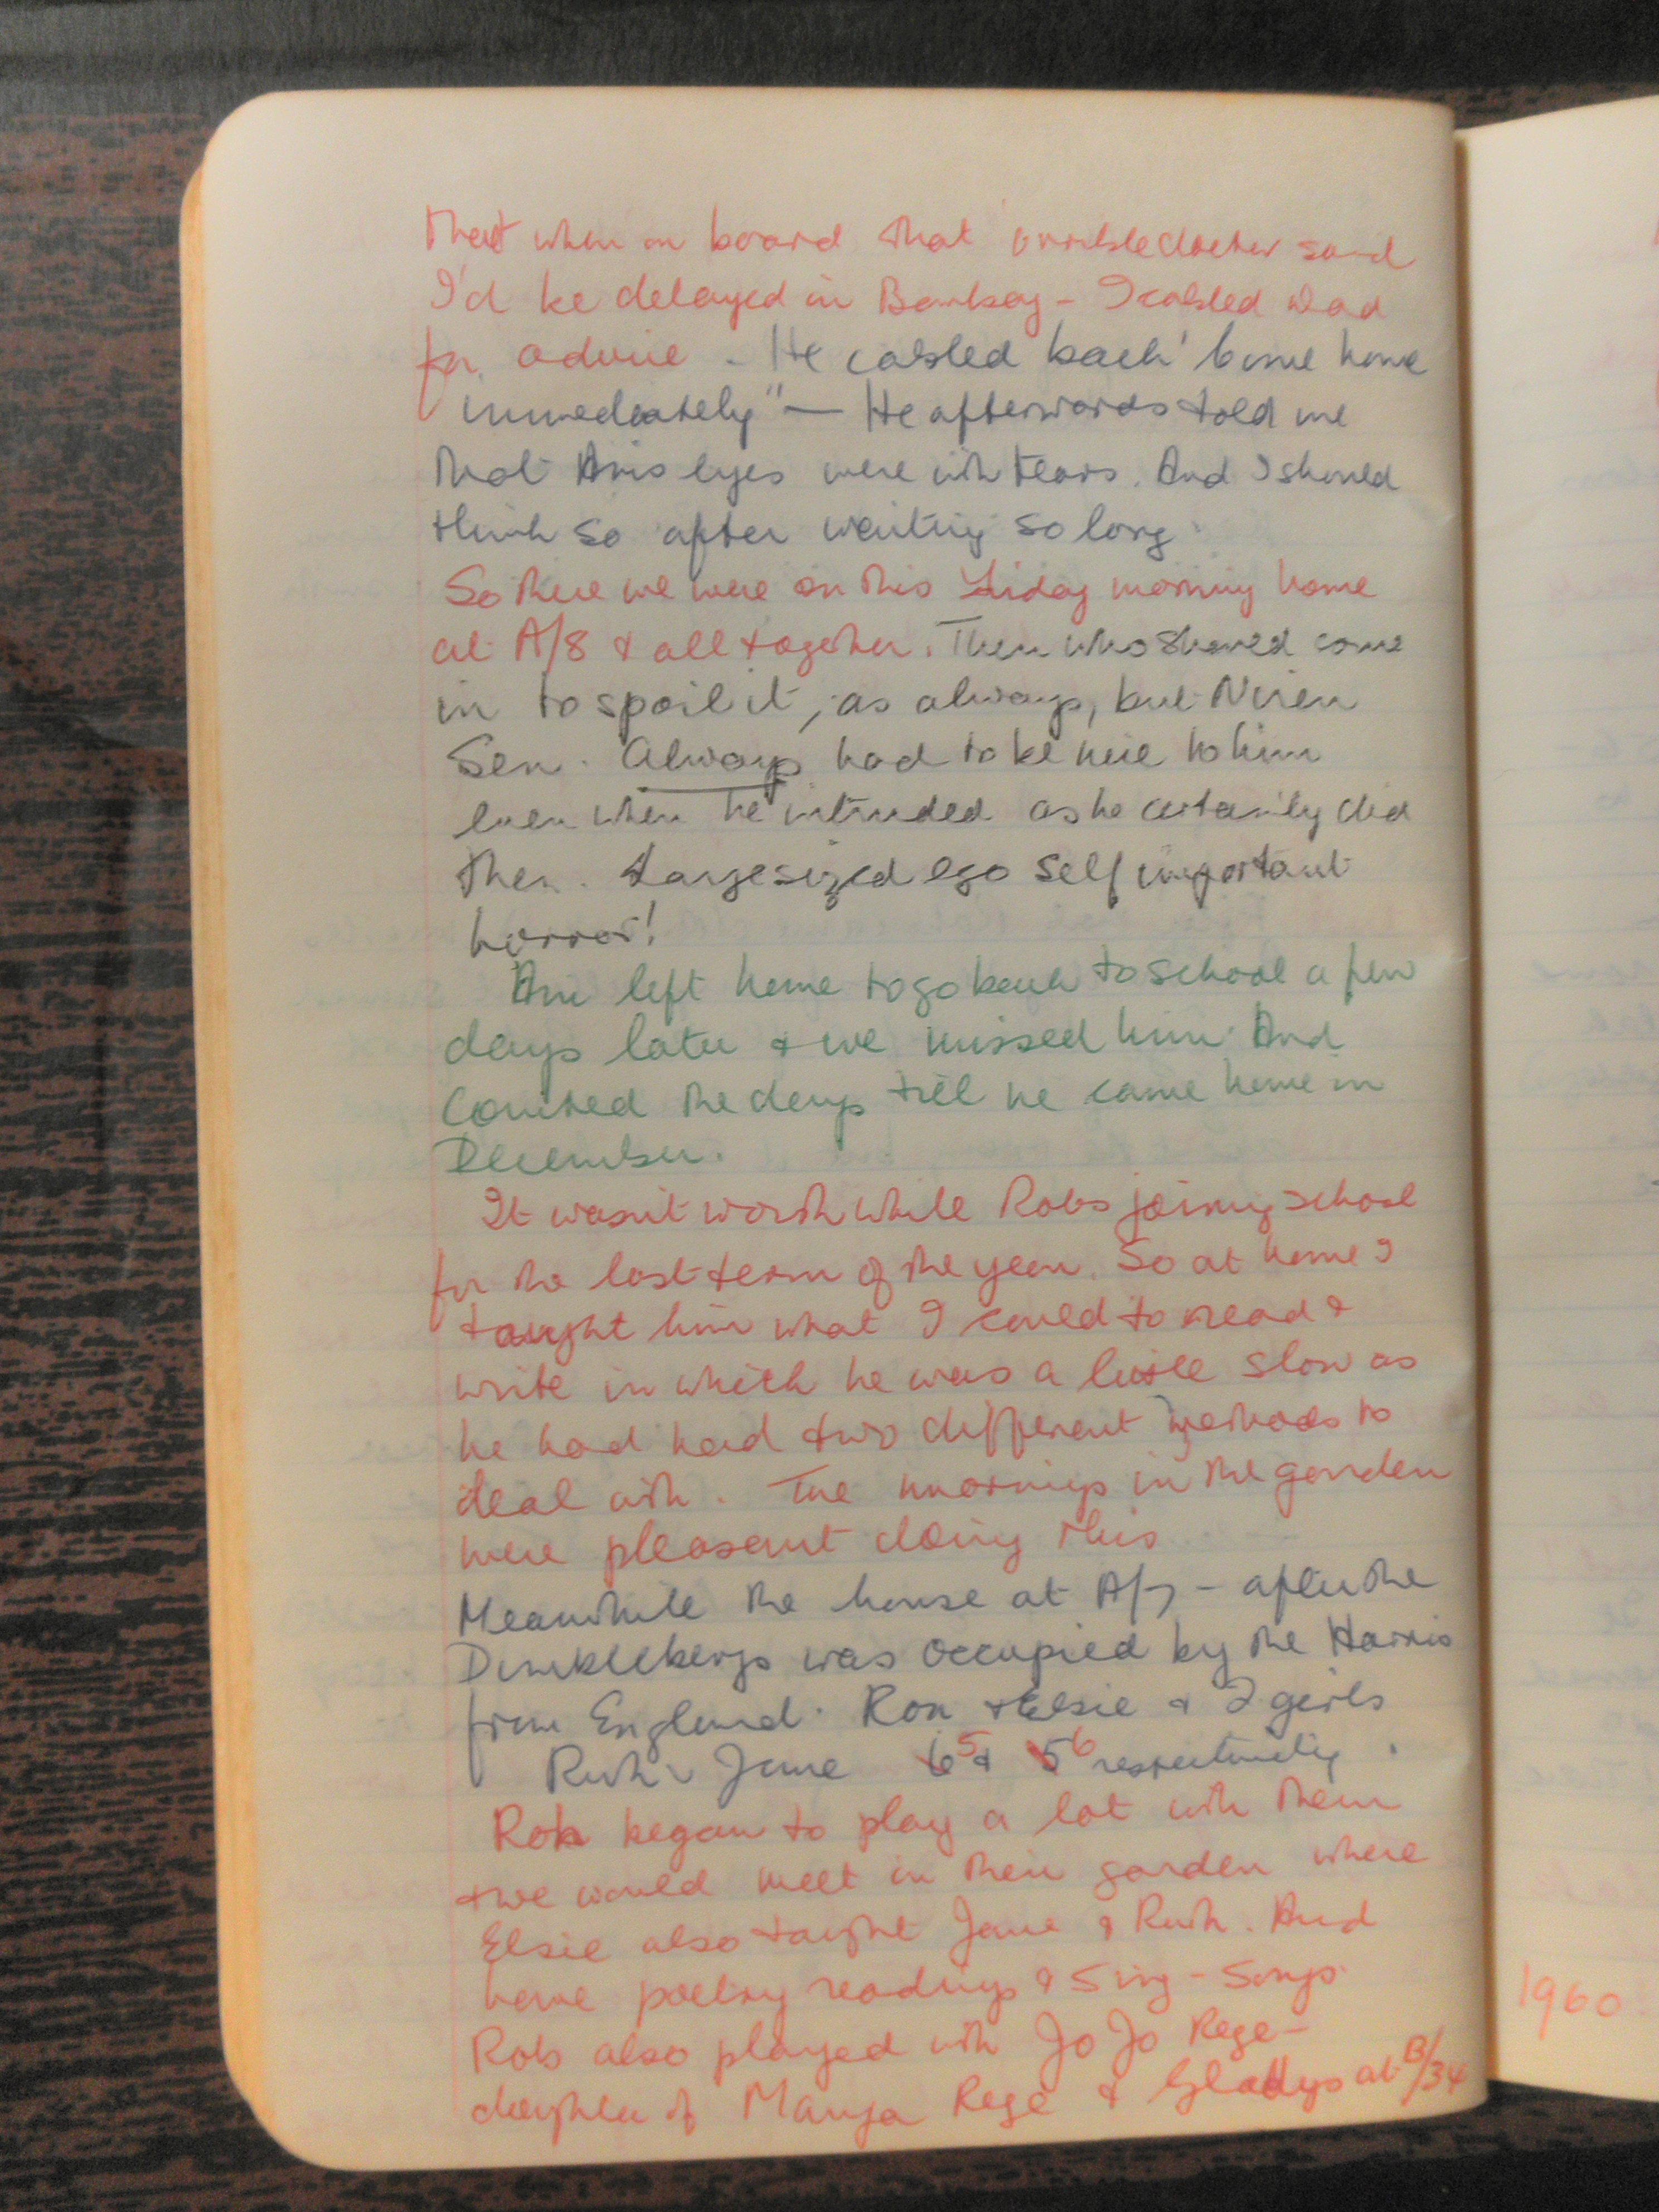 that when on board that horrible doctor said
I'd be delayed in Bombay - I cabled Dad
for advice - He cabled back 'Come home
immediately" — He afterwards told me
that Anis eyes were with tears. And I should
think so after waiting so long.
So there we were on this Friday morning home
at A/8 & all together. Then who should come
in to spoil it, as always, but Niren
Sen. Always had to be nice to him
even when he intruded as he certainly did
then. Large sized ego self important
horror!
Ani left home to go back to school a few
days later & we missed him. And
Counted the days till he came home in
December.
It wasn't worth while Robs joining school
for the last term of the year. So at home I
taught him what I could to read &
write in which he was a little slow as
he had had two different methods to
deal with. The mornings in the garden
were pleasant doing this
Meanwhile the house at A/7 - after the
Dunklebergs was occupied by the Harris
from England. Ron & Elsie & 2 girls
Ruth & Jane 5 & 6 respectively.
Rob began to play a lot with them
& we would meet in their garden where
Elsie also taught Jane & Ruth. And
have poetry readings & Sing-Songs.
Rob also played with Jo Jo Rege -
daughter of Rege & Gladys at B/34
1960